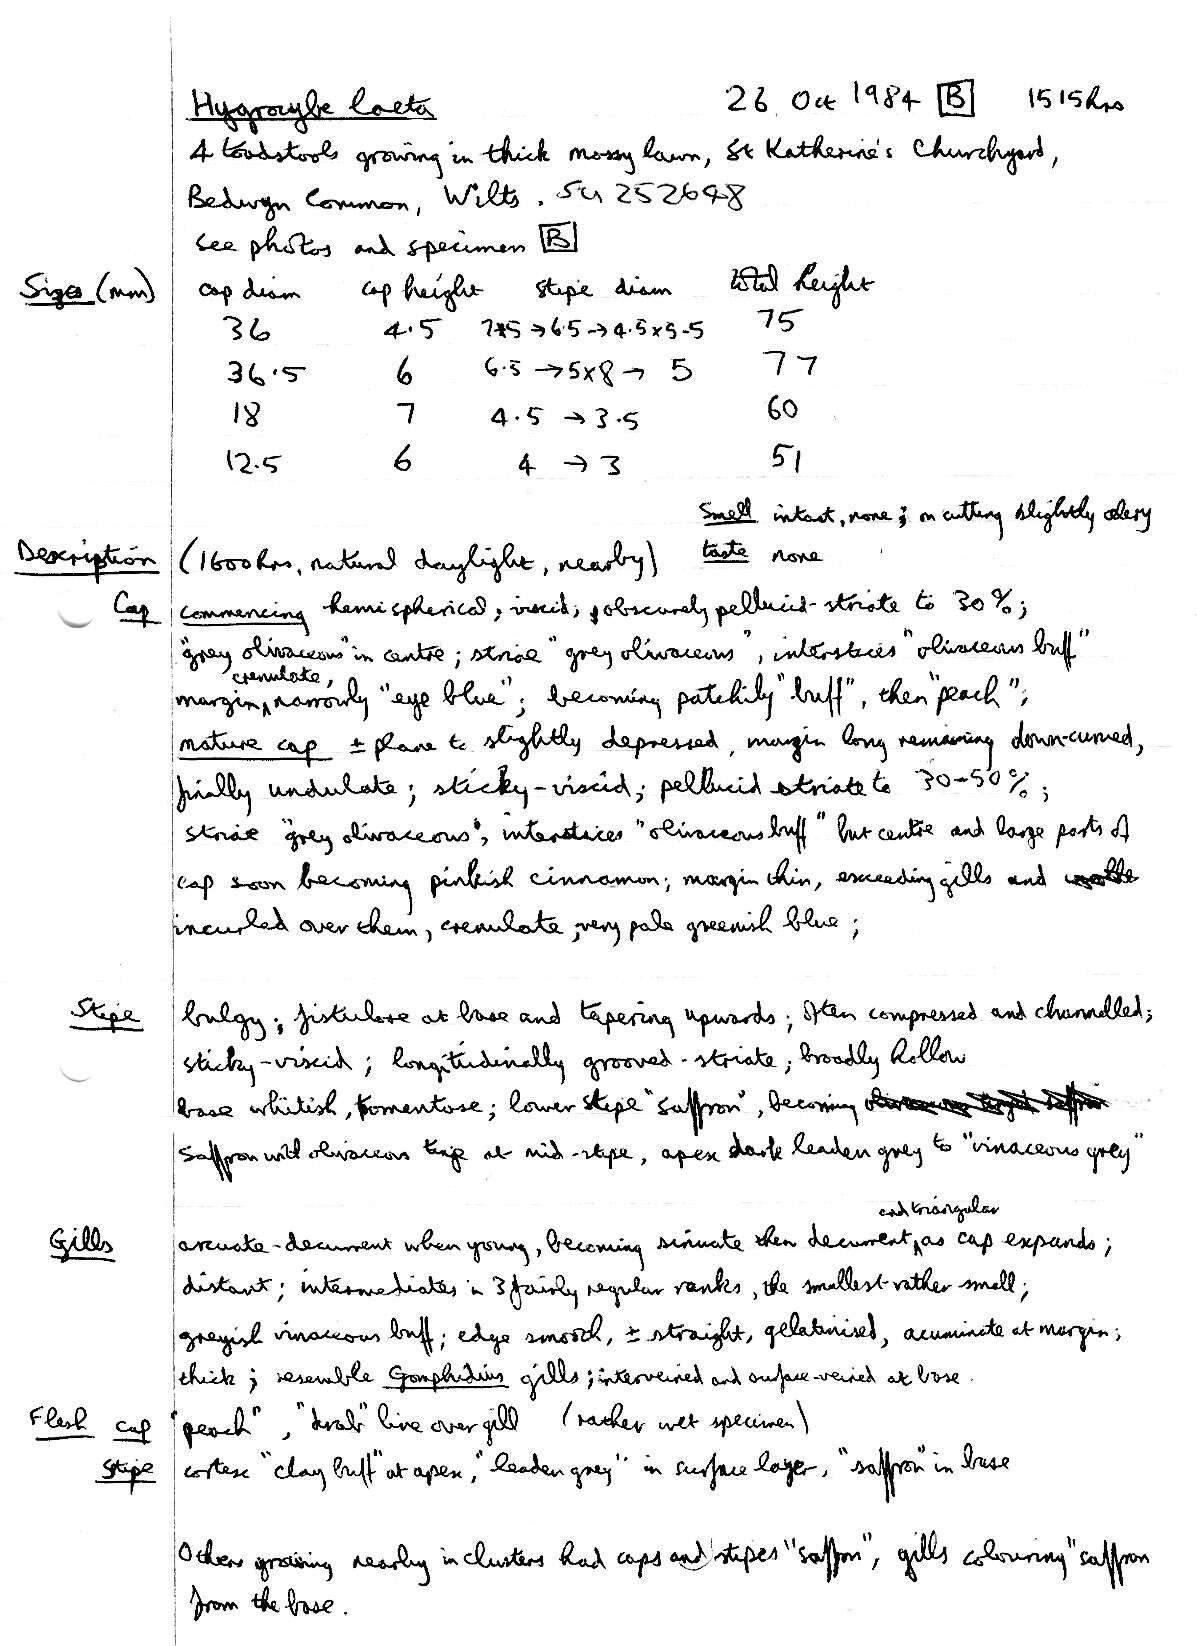 Hygrocybe laeta 26 Oct 1984 B 1515hrs
4 toadstools growing in thick mossy lawn, St Katherine's Churchyard,
Bedwyn Common, Wilts. SU 252648
see photos and specimen B
Sizes (mm) cap diam cap height stipe diam total height
36 4.5 7×5 → 6.5 → 4.5×5.5 75
36.5 6 6.5 → 5×8 → 5 77
18 7 4.5 → 3.5 60
12.5 6 4 → 3 51
Smell intact, none; on cutting slightly celery
Description (1600hrs, natural daylight, nearby) taste none
Cap commencing hemispherical; viscid; obscurely pellucid-striate to 30%;
"grey olivaceous" in centre; striae "grey olivaceous", interstices "olivaceous buff"
crenulate,
margin, narrowly "eye blue"; becoming patchily "buff", then "peach";
mature cap ± plane to slightly depressed, margin long remaining down-curved,
finally undulate; sticky-viscid; pellucid striate to 30-50%;
striae "grey olivaceous", interstices "olivaceous buff" but centre and large parts of
cap soon becoming pinkish cinnamon; margin thin, exceeding gills and
incurled over them, crenulate, very pale greenish blue;
Stipe bulgy; fistulose at base and tapering upwards; often compressed and channelled;
sticky-viscid; longitudinally grooved-striate; broadly hollow
base whitish, tomentose; lower stipe "saffron", becoming
saffron with olivaceous tinge at mid-stipe, apex dark leaden grey to "vinaceous grey"
and triangular
Gills arcuate-decurrent when young, becoming sinuate then decurrent, as cap expands;
distant; intermediates in 3 fairly regular ranks, the smallest rather small;
greyish vinaceous buff; edge smooth, ± straight, gelatinised, acuminate at margin;
thick; resemble Gomphidius gills; interveined and surface-veined at base.
Flesh cap "peach", "drab" line over gill (rather wet specimen)
Stipe cortex "clay buff" at apex, "leaden grey" in surface layer, "saffron" in base
Others growing nearby in clusters had caps and stipes "saffron", gills colouring "saffron
from the base.